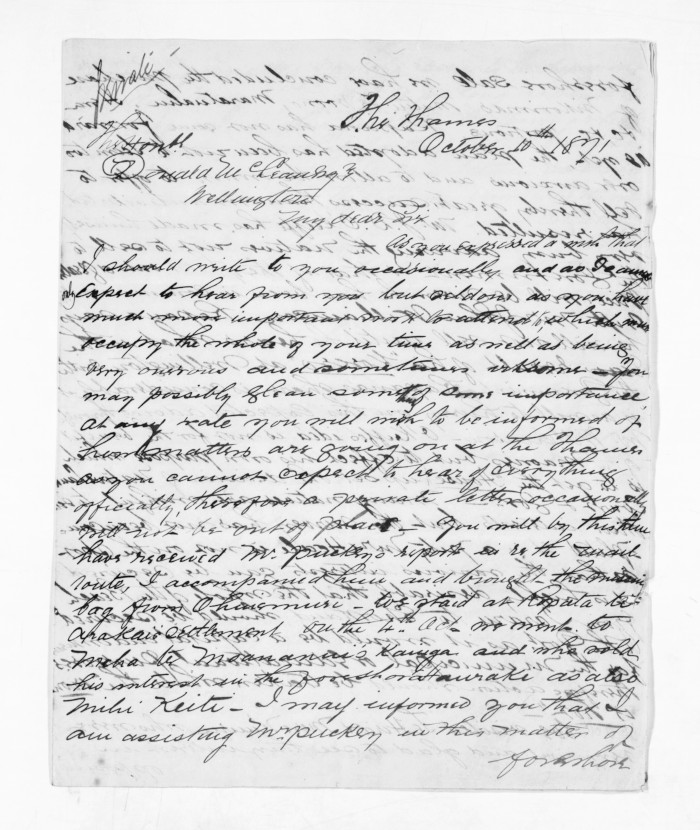 Private
The Thames
October 10th 1871
Honble
Donald McLean Esqr
Wellington
My dear Sir
As you expressed a wish that
I should write to you occasionally and as I cannot
expect to hear from you but seldom as you have
only
much more important work to attend to which must
occupy the whole of your time as well as being
very onerous and sometimes irksome - You
may possibly glean something of some importance
at any rate you will wish to be informed of
how matters are going on at the Thames
as you cannot expect to hear of everything
officially, therefore a private letter occasionally
will not be out of place - You will by this time
have received Mr Puckey's report in re the mail
route, I accompanied him and brought the
bag from Ohinemuri - We staid at
settlement on the 4th Oct we went to
Meha te Kainga and who sold
his interest in the foreshore Hauraki as also
Mihi Keita - I may informed you that I
am assisting Mr Puckey in this matter of
foreshore